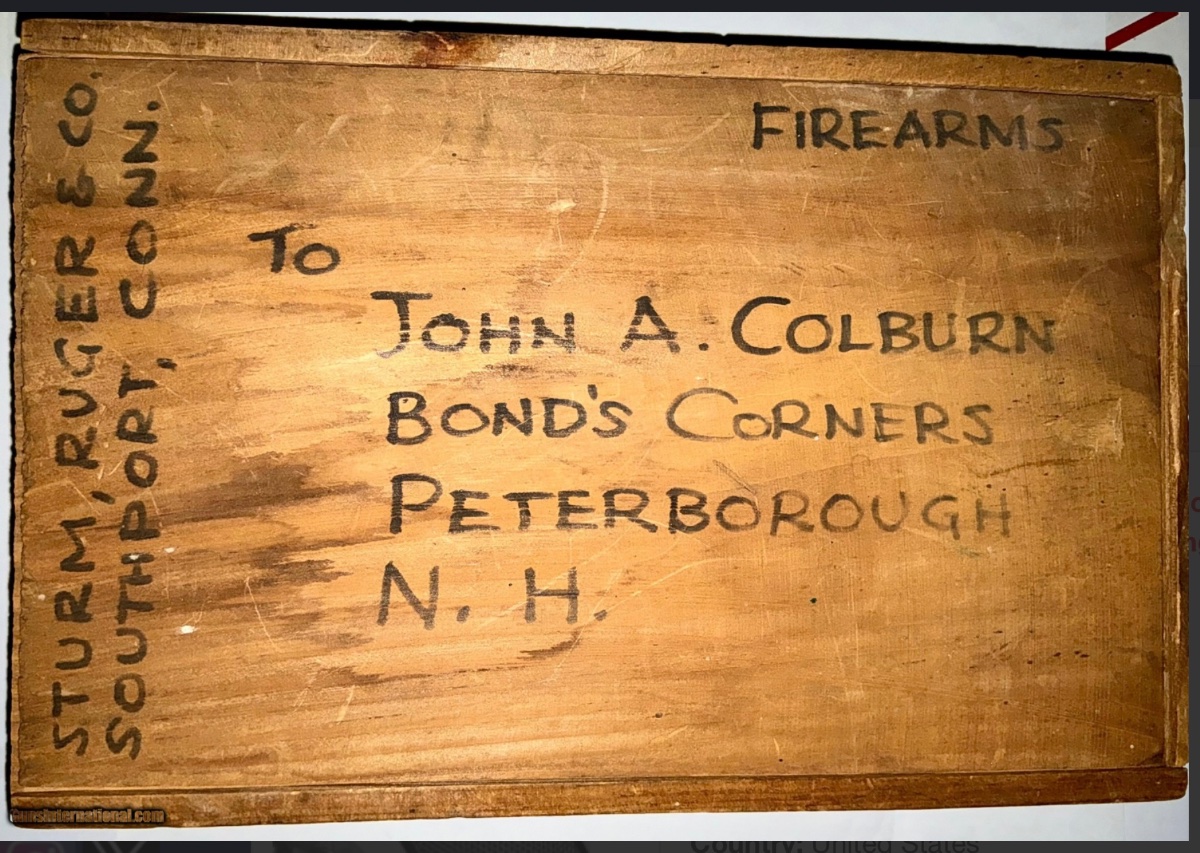 STURM, RUGER & CO.
SOUTHPORT, CONN.
FIREARMS
To
JOHN A. COLBURN
BOND'S CORNERS
PETERBOROUGH
N. H.
gunsinternational.com
Country: United States